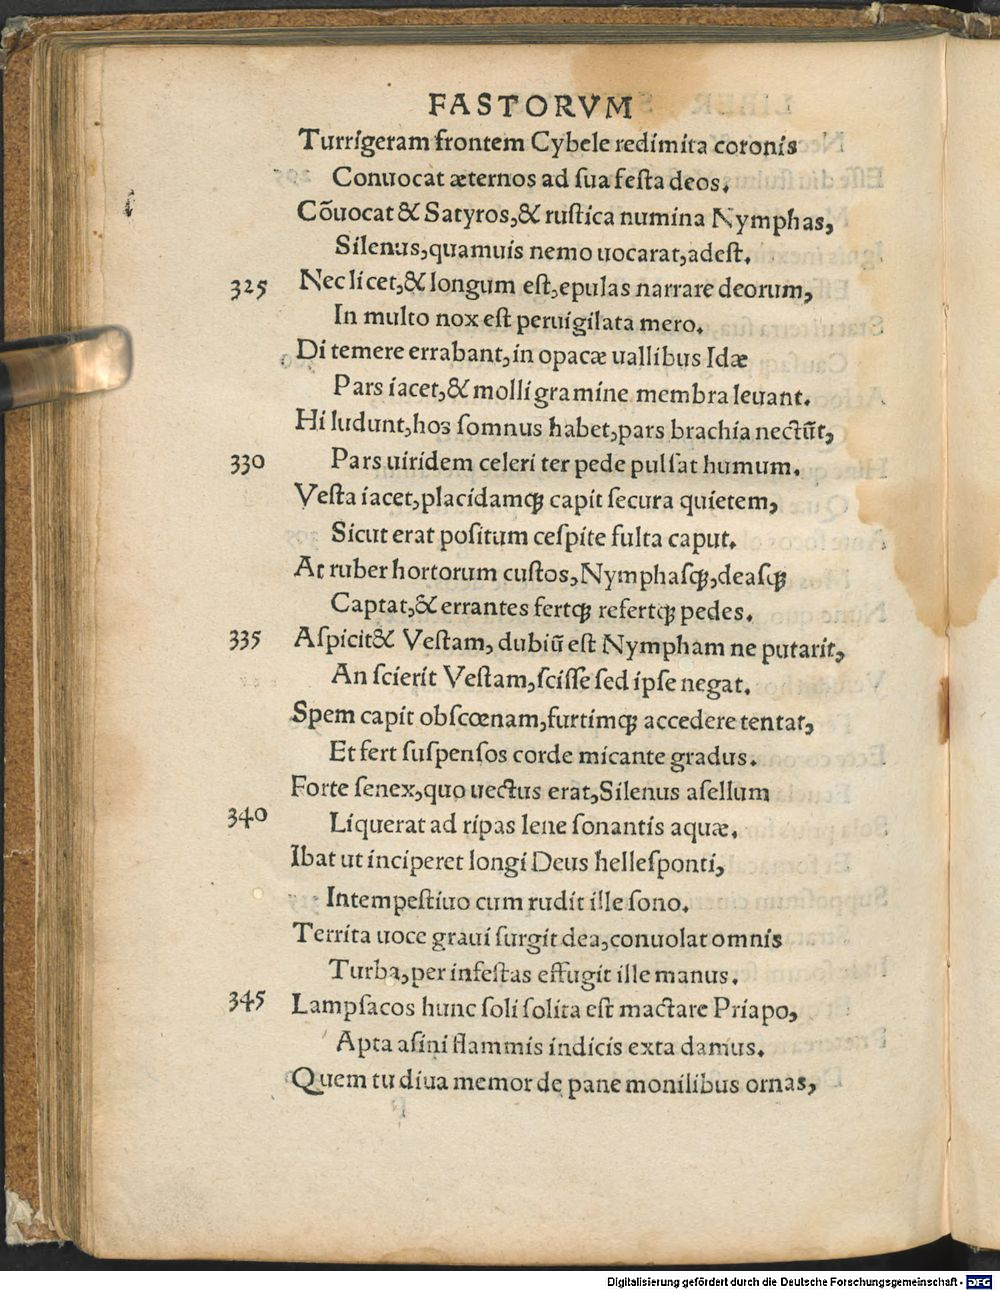 FASTORVM
Turrigeram frontem Cybele redimita coronis
Conuocat æternos ad ſua feſta deos.
Cõuocat & Satyros,& ruſtica numina Nymphas,
Silenus,quamuis nemo uocarat,adeſt.
325 Nec licet,& longum eſt,epulas narrare deorum,
In multo nox eſt peruigilata mero.
Di temere errabant,in opacæ uallibus Idæ
Pars iacet,& molli gramine membra leuant.
Hi ludunt,hos ſomnus habet,pars brachia nectũt,
330 Pars uiridem celeri ter pede pulſat humum.
Veſta iacet,placidamqꝫ capit ſecura quietem,
Sicut erat poſitum ceſpite fulta caput.
At ruber hortorum cuſtos,Nymphaſqꝫ,deaſqꝫ
Captat,& errantes fertqꝫ refertqꝫ pedes.
335 Aſpicit& Veſtam, dubiũ eſt Nympham ne putarit,
An ſcierit Veſtam,ſciſſe ſed ipſe negat.
Spem capit obſcœnam,furtimqꝫ accedere tentat,
Et fert ſuſpenſos corde micante gradus.
Forte ſenex,quo uectus erat,Silenus aſellum
340 Liquerat ad ripas lene ſonantis aquæ.
Ibat ut inciperet longi Deus helleſponti,
Intempeſtiuo cum rudit ille ſono.
Territa uoce graui ſurgit dea,conuolat omnis
Turba,per infeſtas effugit ille manus.
345 Lampſacos hunc ſoli ſolita eſt mactare Priapo,
Apta aſini flammis indicis exta damus.
Quem tu diua memor de pane monilibus ornas,
Digitalisierung gefördert durch die Deutsche Forschungsgemeinschaft - DFG